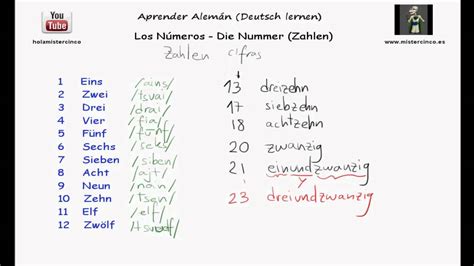 You Tube
holamistercinco
Aprender Alemán (Deutsch lernen)
Los Números - Die Nummer (Zahlen)
www.mistercinco.es
Zahlen cifras
1 Eins /ains/
2 Zwei /tsvai/
3 Drei /drai/
4 Vier /fia/
5 Fünf /fünf/
6 Sechs /seks/
7 Sieben /siben/
8 Acht /ajt/
9 Neun /noin/
10 Zehn /tsen/
11 Elf /elf/
12 Zwölf
13 dreizehn
17 siebzehn
18 achtzehn
20 zwanzig
21 einundzwanzig
y
23 dreiundzwanzig